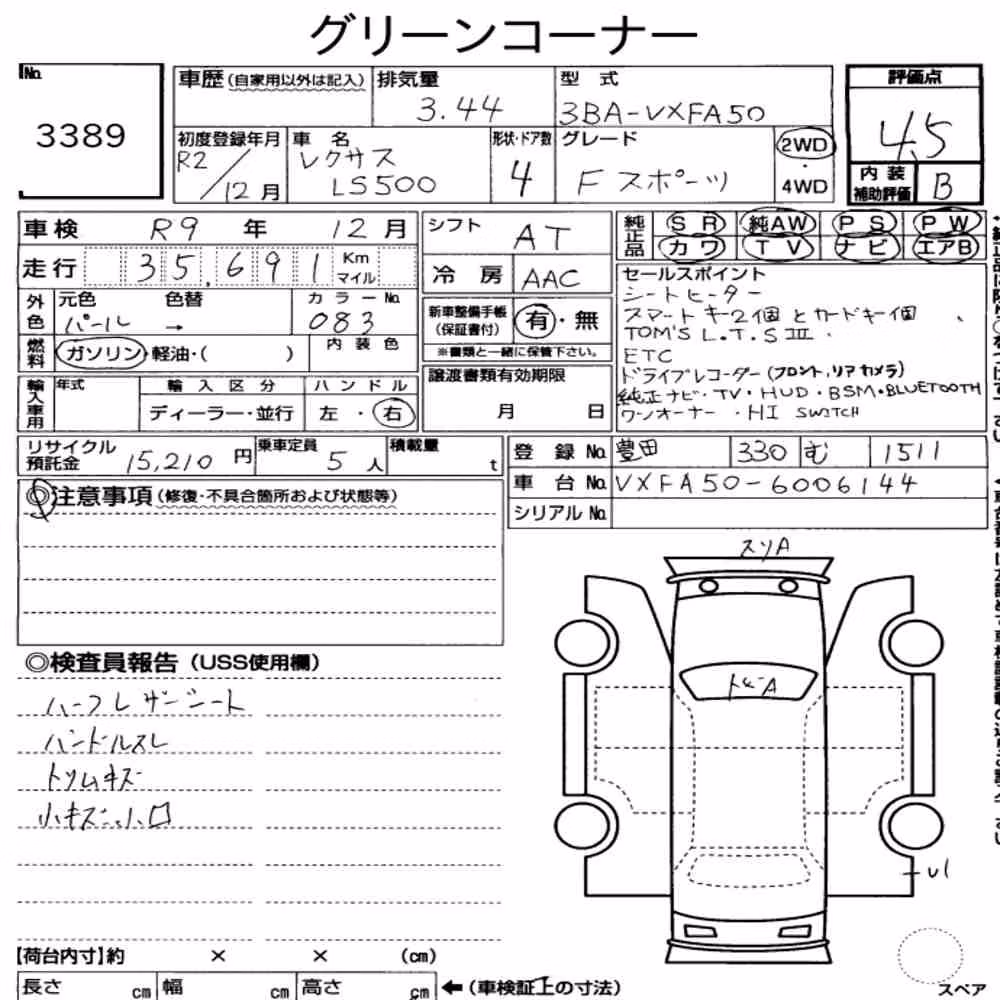 グリーンコーナー
No.
3389
車歴(自家用以外は記入)
排気量
3.44
型 式
3BA-VXFA50
初度登録年月
R2/12月
車 名
レクサス
LS500
形状・ドア数
4
グレード
F スポーツ
2WD
・
4WD
評価点
4.5
内 装
補助評価
B
車検 R9 年 12 月
走行 35,691 Km
マイル
シフト AT
冷 房 AAC
純正品
SR 純AW PS PW
カワ TV ナビ エアB
セールスポイント
シートヒーター
スマートキー2個とカードキー1個、
TOM'S L.T.S III.
ETC
ドライブレコーダー(フロント,リアカメラ)
純正ナビ・TV・HUD・BSM・BLUETOOTH
ワンオーナー・HI SWITCH
外色
元色
パール
→
色替
カラーNo.
083
燃料
ガソリン・軽油・( )
内 装 色
新車整備手帳
(保証書付)
有・無
※書類と一緒に保管下さい。
譲渡書類有効期限
月 日
輸入車用
年式
輸 入 区 分
ディーラー・並行
ハ ン ド ル
左 ・ 右
リサイクル
預託金
15,210 円
乗車定員
5 人
積載量
t
登 録 No. 豊田 330 む 1511
車 台 No. VXFA50-6006144
シリアル No.
◎注意事項(修復・不具合箇所および状態等)
◎検査員報告(USS使用欄)
ハーフレザーシート
ハンドルスレ
トリムキズ
小キズ、小凹
スリA
トビA
-U1
【荷台内寸】約 × × (cm)
長さ cm 幅 cm 高さ cm ←(車検証上の寸法)
スペア